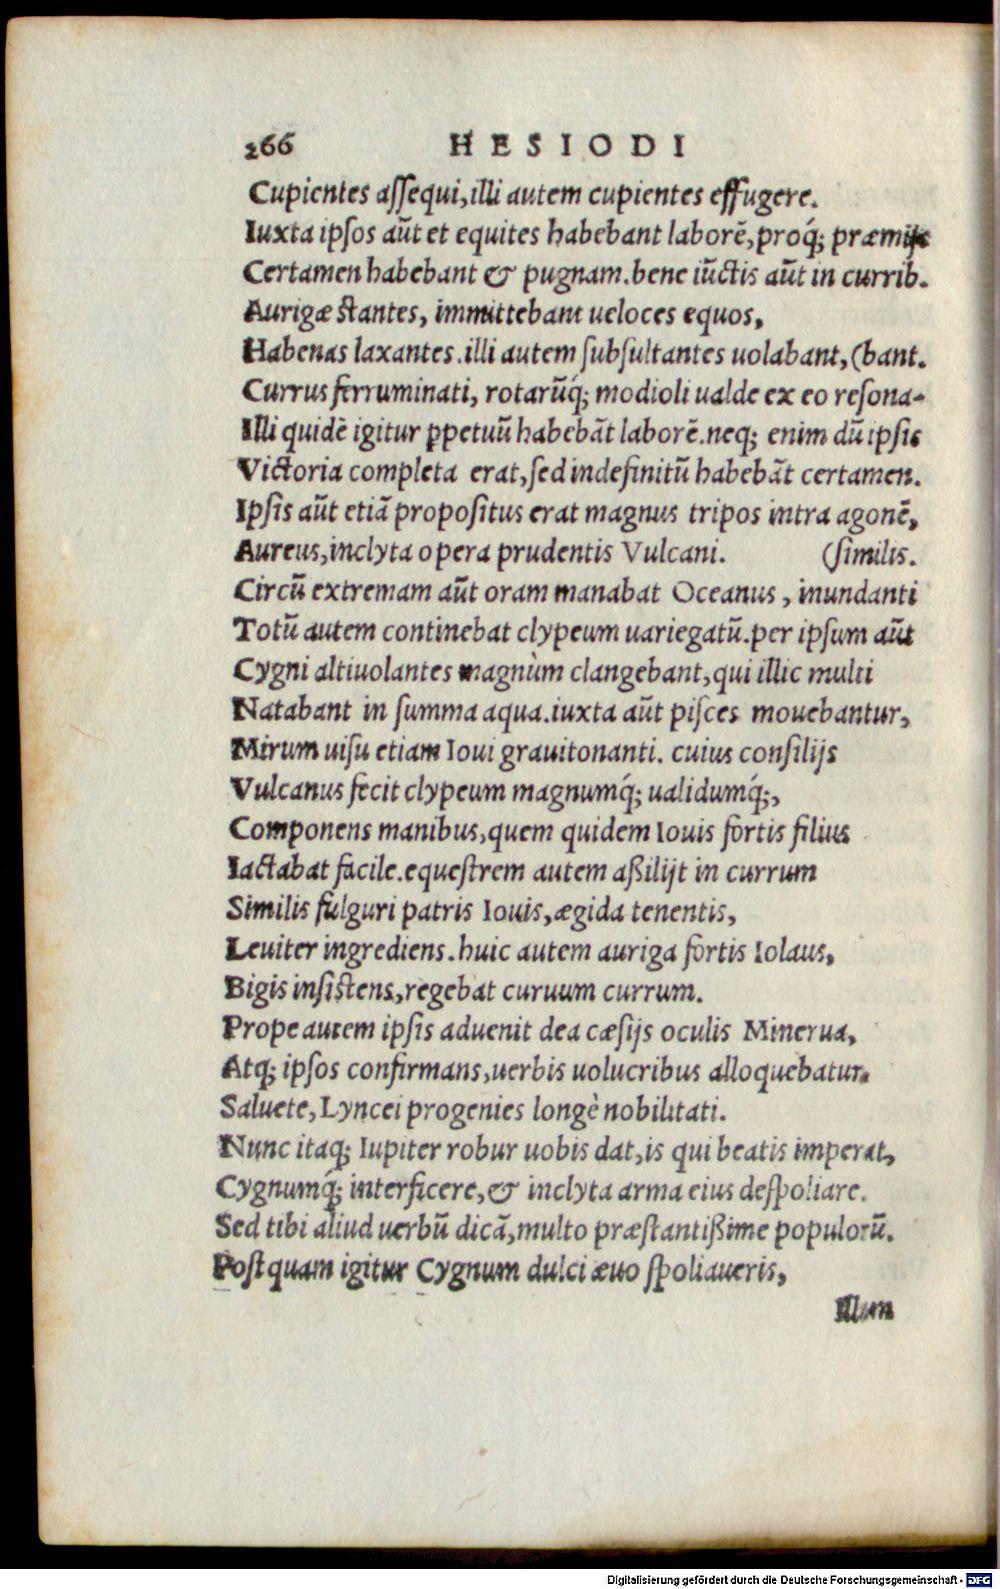 266 HESIODI
Cupientes aſſequi, illi autem cupientes effugere.
Iuxta ipſos aũt et equites habebant laborẽ, proq́; præmijs
Certamen habebant & pugnam. bene iũctis aũt in currib.
Aurigæ ſtantes, immittebant ueloces equos,
Habenas laxantes. illi autem ſubſultantes uolabant, (bant.
Currus ferruminati, rotarũq́; modioli ualde ex eo reſona-
Illi quidẽ igitur ꝑpetuũ habebãt laborẽ. neq; enim dũ ipſis
Victoria completa erat, ſed indefinitũ habebãt certamen.
Ipſis aũt etiã propoſitus erat magnus tripos intra agonẽ,
Aureus, inclyta opera prudentis Vulcani. (ſimilis.
Circũ extremam aũt oram manabat Oceanus, inundanti
Totũ autem continebat clypeum uariegatũ. per ipſum aũt
Cygni altiuolantes magnùm clangebant, qui illic multi
Natabant in ſumma aqua. iuxta aũt piſces mouebantur,
Mirum uiſu etiam Ioui grauitonanti. cuius conſilijs
Vulcanus fecit clypeum magnumq́; ualidumq́;,
Componens manibus, quem quidem Iouis fortis filius
Iactabat facile. equeſtrem autem aßilijt in currum
Similis fulguri patris Iouis, ægida tenentis,
Leuiter ingrediens. huic autem auriga fortis Iolaus,
Bigis inſiſtens, regebat curuum currum.
Prope autem ipſis aduenit dea cæſijs oculis Minerua,
Atq; ipſos confirmans, uerbis uolucribus alloquebatur.
Saluete, Lyncei progenies longè nobilitati.
Nunc itaq; Iupiter robur uobis dat, is qui beatis imperat,
Cygnumq́; interficere, & inclyta arma eius deſpoliare.
Sed tibi aliud uerbũ dicã, multo præſtantißime populorũ.
Poſtquam igitur Cygnum dulci æuo ſpoliaueris,
Illum
Digitalisierung gefördert durch die Deutsche Forschungsgemeinschaft - DFG